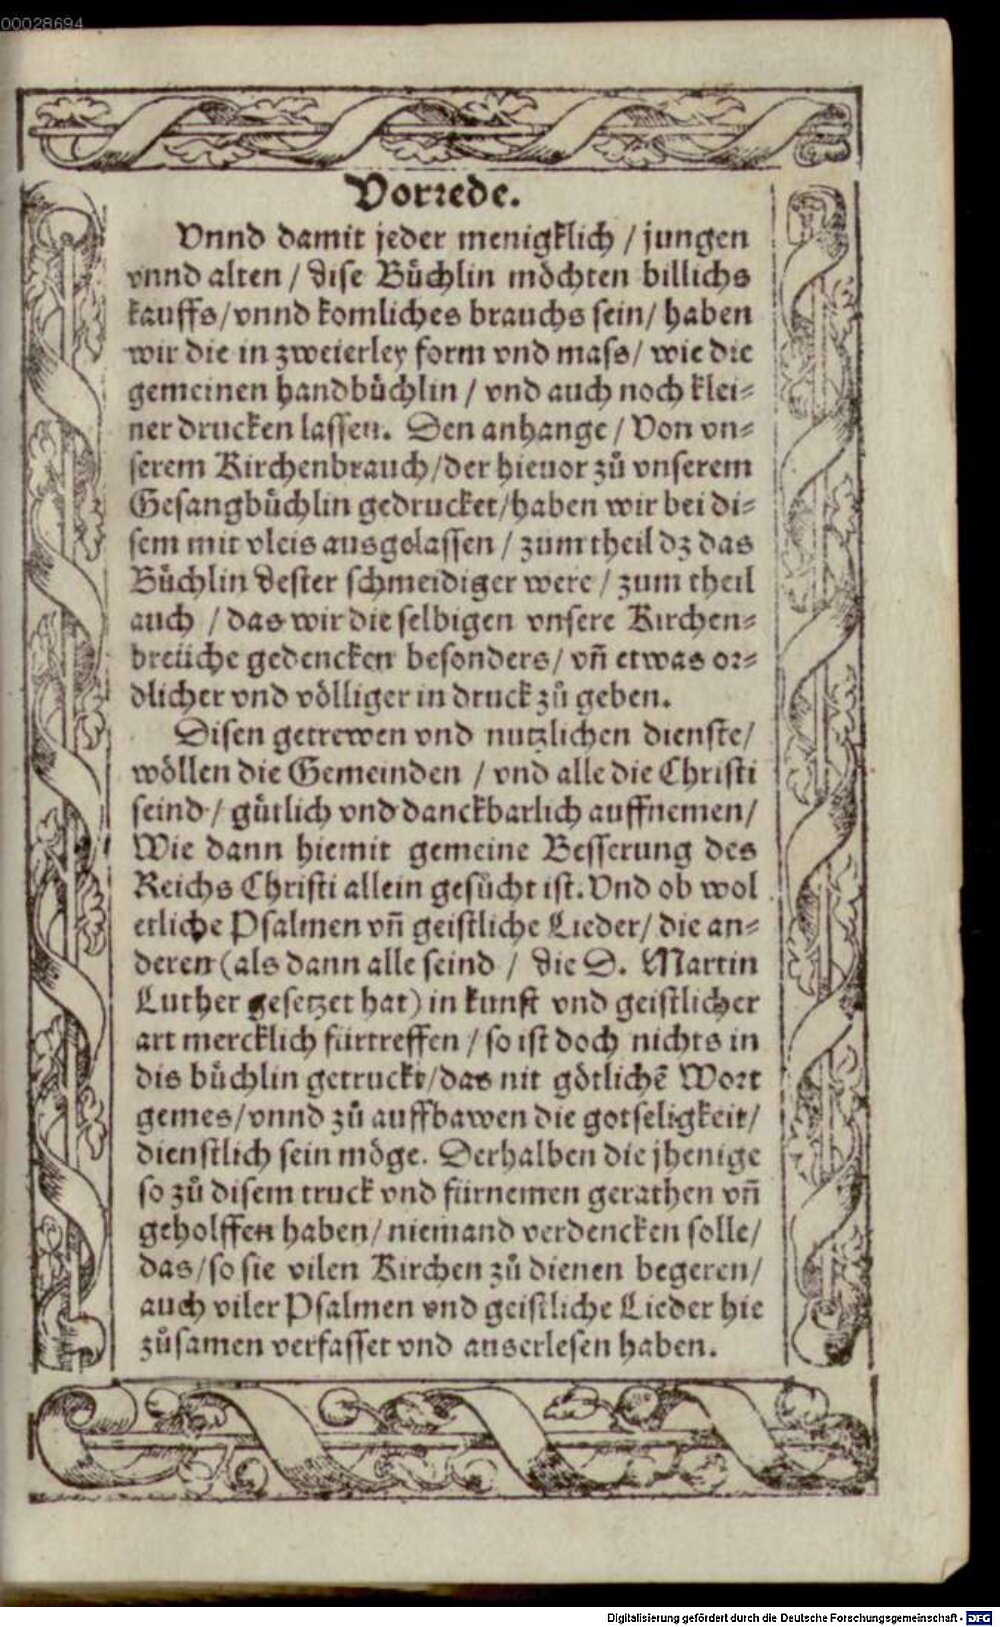 00028694
Vorrede.
Vnnd damit jeder menigklich / jungen
vnnd alten / dise Bůchlin möchten billichs
kauffs / vnnd komliches brauchs sein / haben
wir die in zweierley form vnd mass / wie die
gemeinen handbůchlin / vnd auch noch klei⸗
ner drucken lassen. Den anhange / Von vn⸗
serem Kirchenbrauch / der hieuor zů vnserem
Gesangbůchlin gedrucket / haben wir bei di⸗
sem mit vleis ausgelassen / zum theil dz das
Bůchlin dester schmeidiger were / zum theil
auch / das wir die selbigen vnsere Kirchen⸗
breüche gedencken besonders / vn̄ etwas or⸗
dlicher vnd völliger in druck zů geben.
Disen getrewen vnd nutzlichen dienste /
wöllen die Gemeinden / vnd alle die Christi
seind / gůtlich vnd danckbarlich auffnemen /
Wie dann hiemit gemeine Besserung des
Reichs Christi allein gesůcht ist. Vnd ob wol
etliche Psalmen vn̄ geistliche Lieder / die an⸗
deren (als dann alle seind / die D. Martin
Luther gesetzet hat) in kunst vnd geistlicher
art mercklich fürtreffen / so ist doch nichts in
dis bůchlin getruckt / das nit götlichē Wort
gemes / vnnd zů auffbawen die gotseligkeit /
dienstlich sein möge. Derhalben die jhenige
so zů disem truck vnd fürnemen gerathen vn̄
geholffen haben / niemand verdencken solle /
das / so sie vilen Kirchen zů dienen begeren /
auch viler Psalmen vnd geistliche Lieder hie
zůsamen verfasset vnd auserlesen haben.
Digitalisierung gefördert durch die Deutsche Forschungsgemeinschaft - DFG